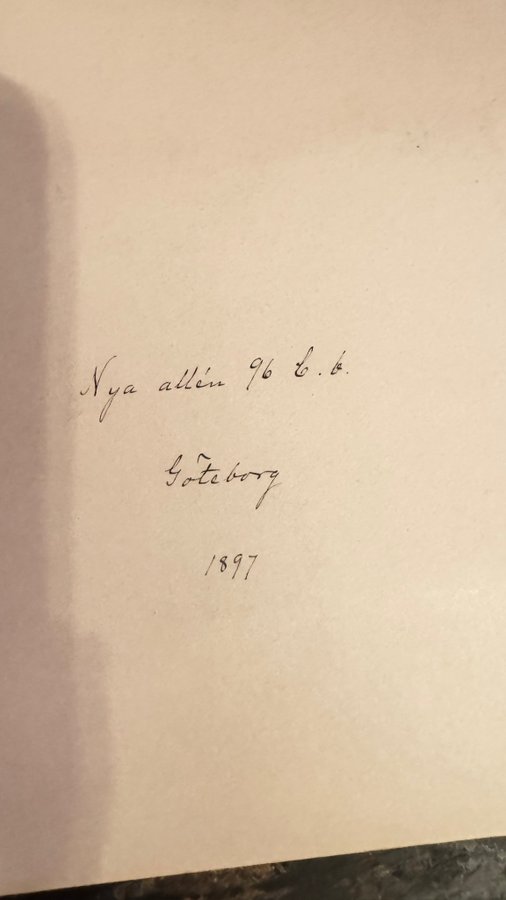 Nya allén 96 C. b.
Göteborg
1897